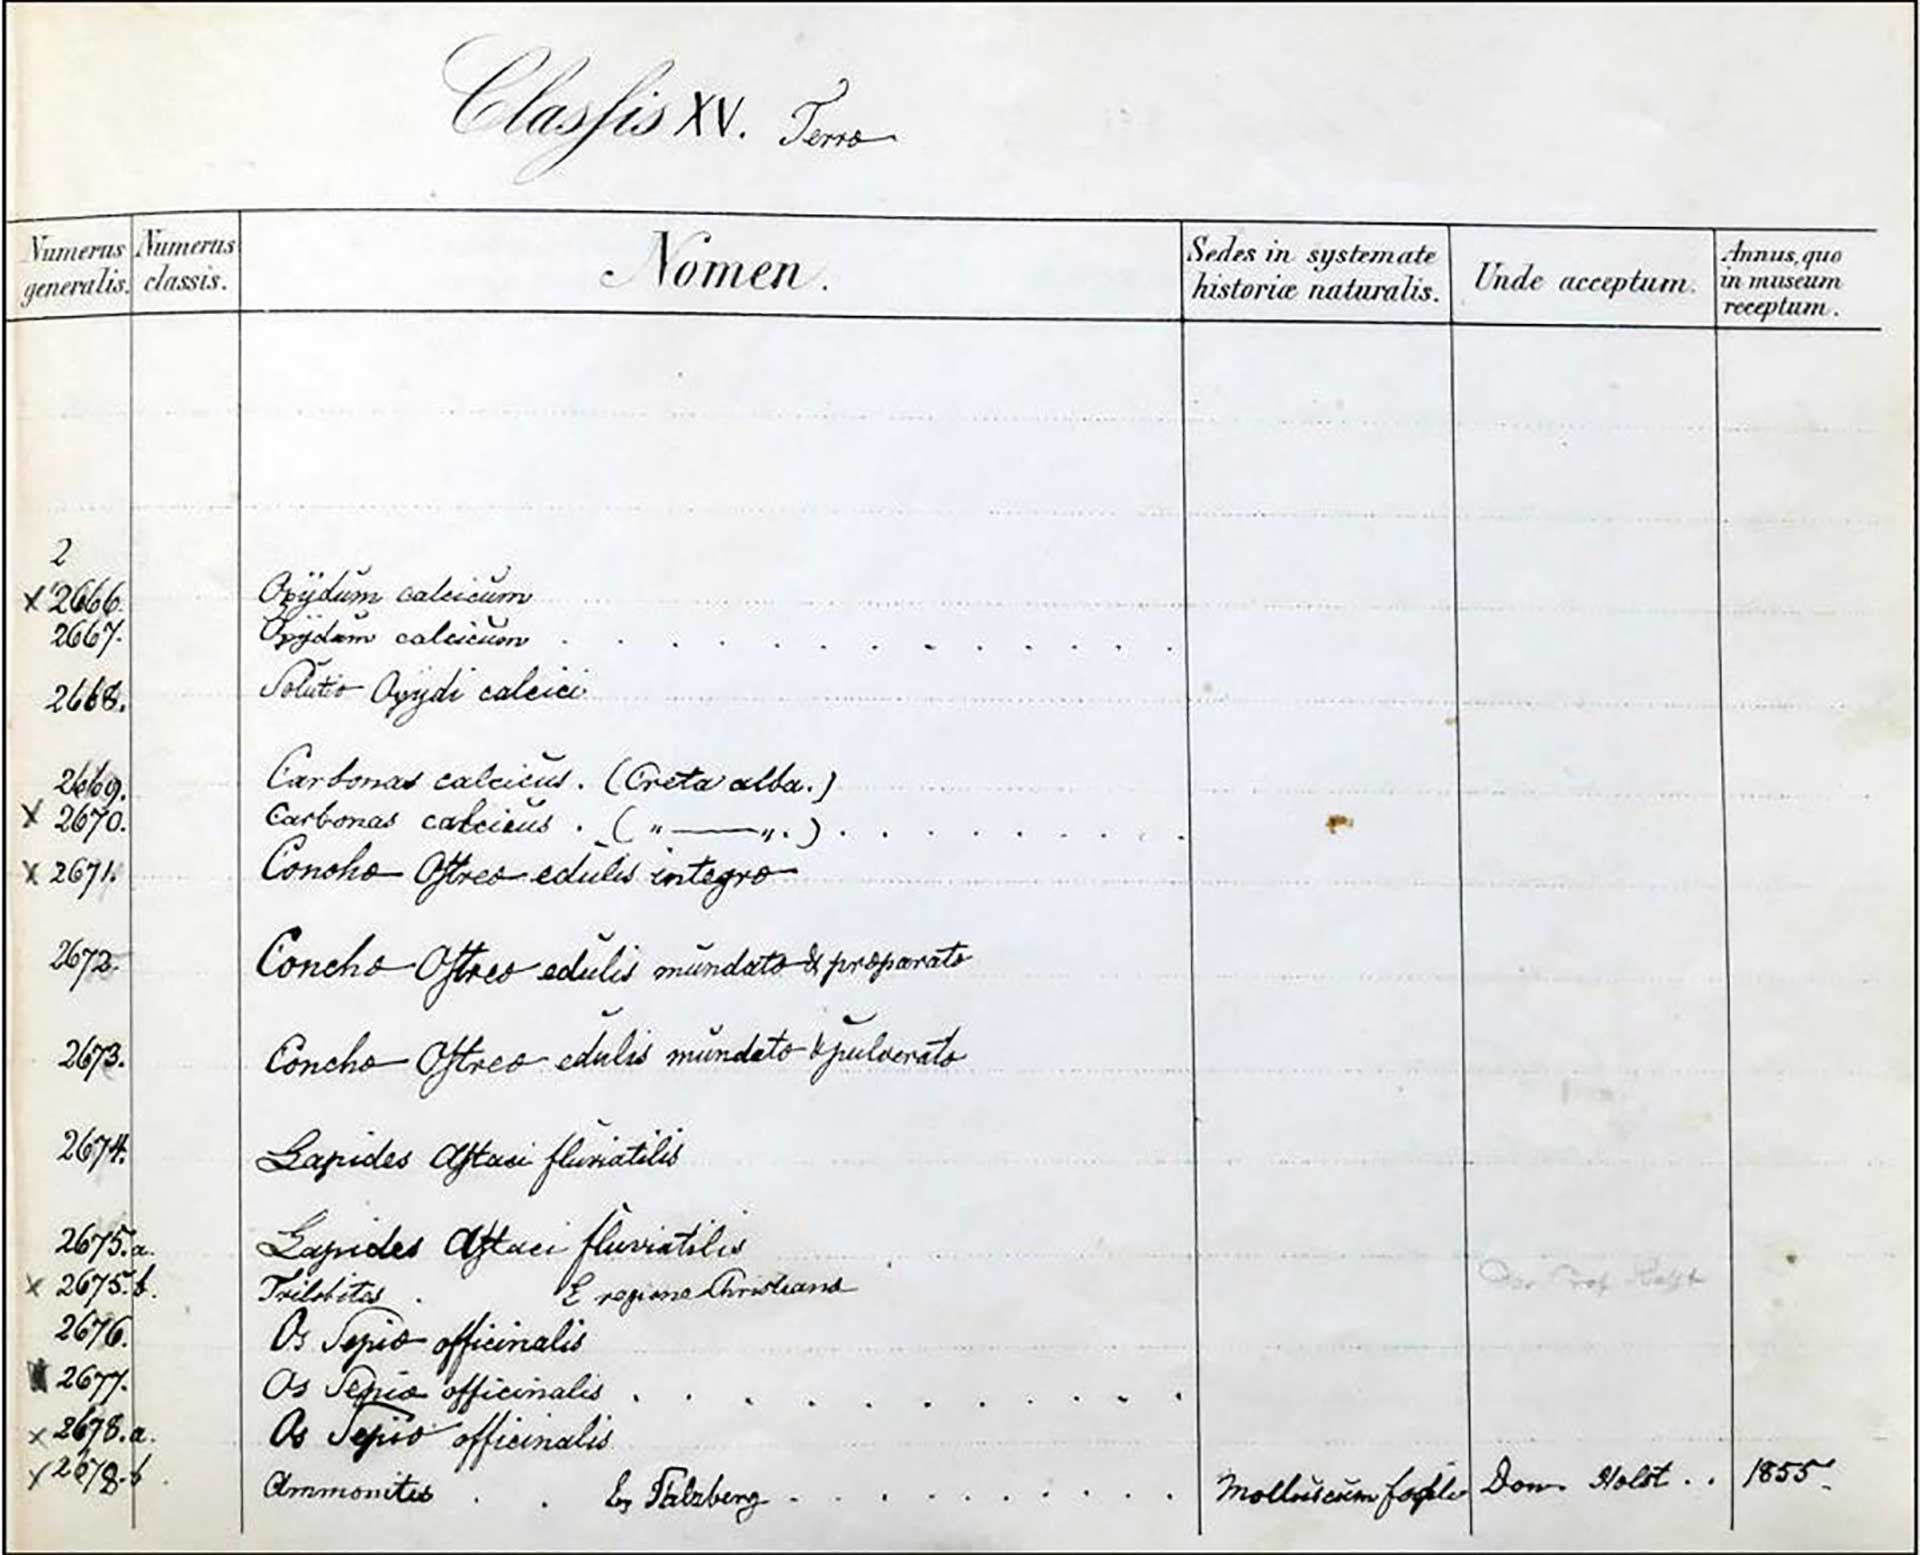 Classis XV. Terræ
Numerus generalis. Numerus classis. Nomen. Sedes in systemate historiæ naturalis. Unde acceptum. Annus, quo in museum receptum.
2
X 2666. Oxÿdum calcicum
2667. Oxÿdum calcicum . . . . . . . . . . . .
2668. Solutio Oxÿdi calcici
2669. Carbonas calcicus. (Creta alba.)
X 2670. Carbonas calcicus. ( „ —— „ . ) . . . . . . . . .
X 2671. Conchæ Ostreæ edulis integræ
2672. Conchæ Ostreæ edulis mundatæ & præparatæ
2673. Conchæ Ostreæ edulis mundatæ & pulveratæ
2674. Lapides Astaci fluviatilis
2675.a. Lapides Astaci fluviatilis
x 2675.b. Trilobites . E regione Christianæ Prof.
2676. Os Sepiæ officinalis
2677. Os Sepiæ officinalis . . . . . . . . . . .
x 2678.a. Os Sepiæ officinalis
x 2678.b. Ammonites . . Ex Salzberg . . . . . . . . . . Molluscum fossile Dom. Holst . . 1855.